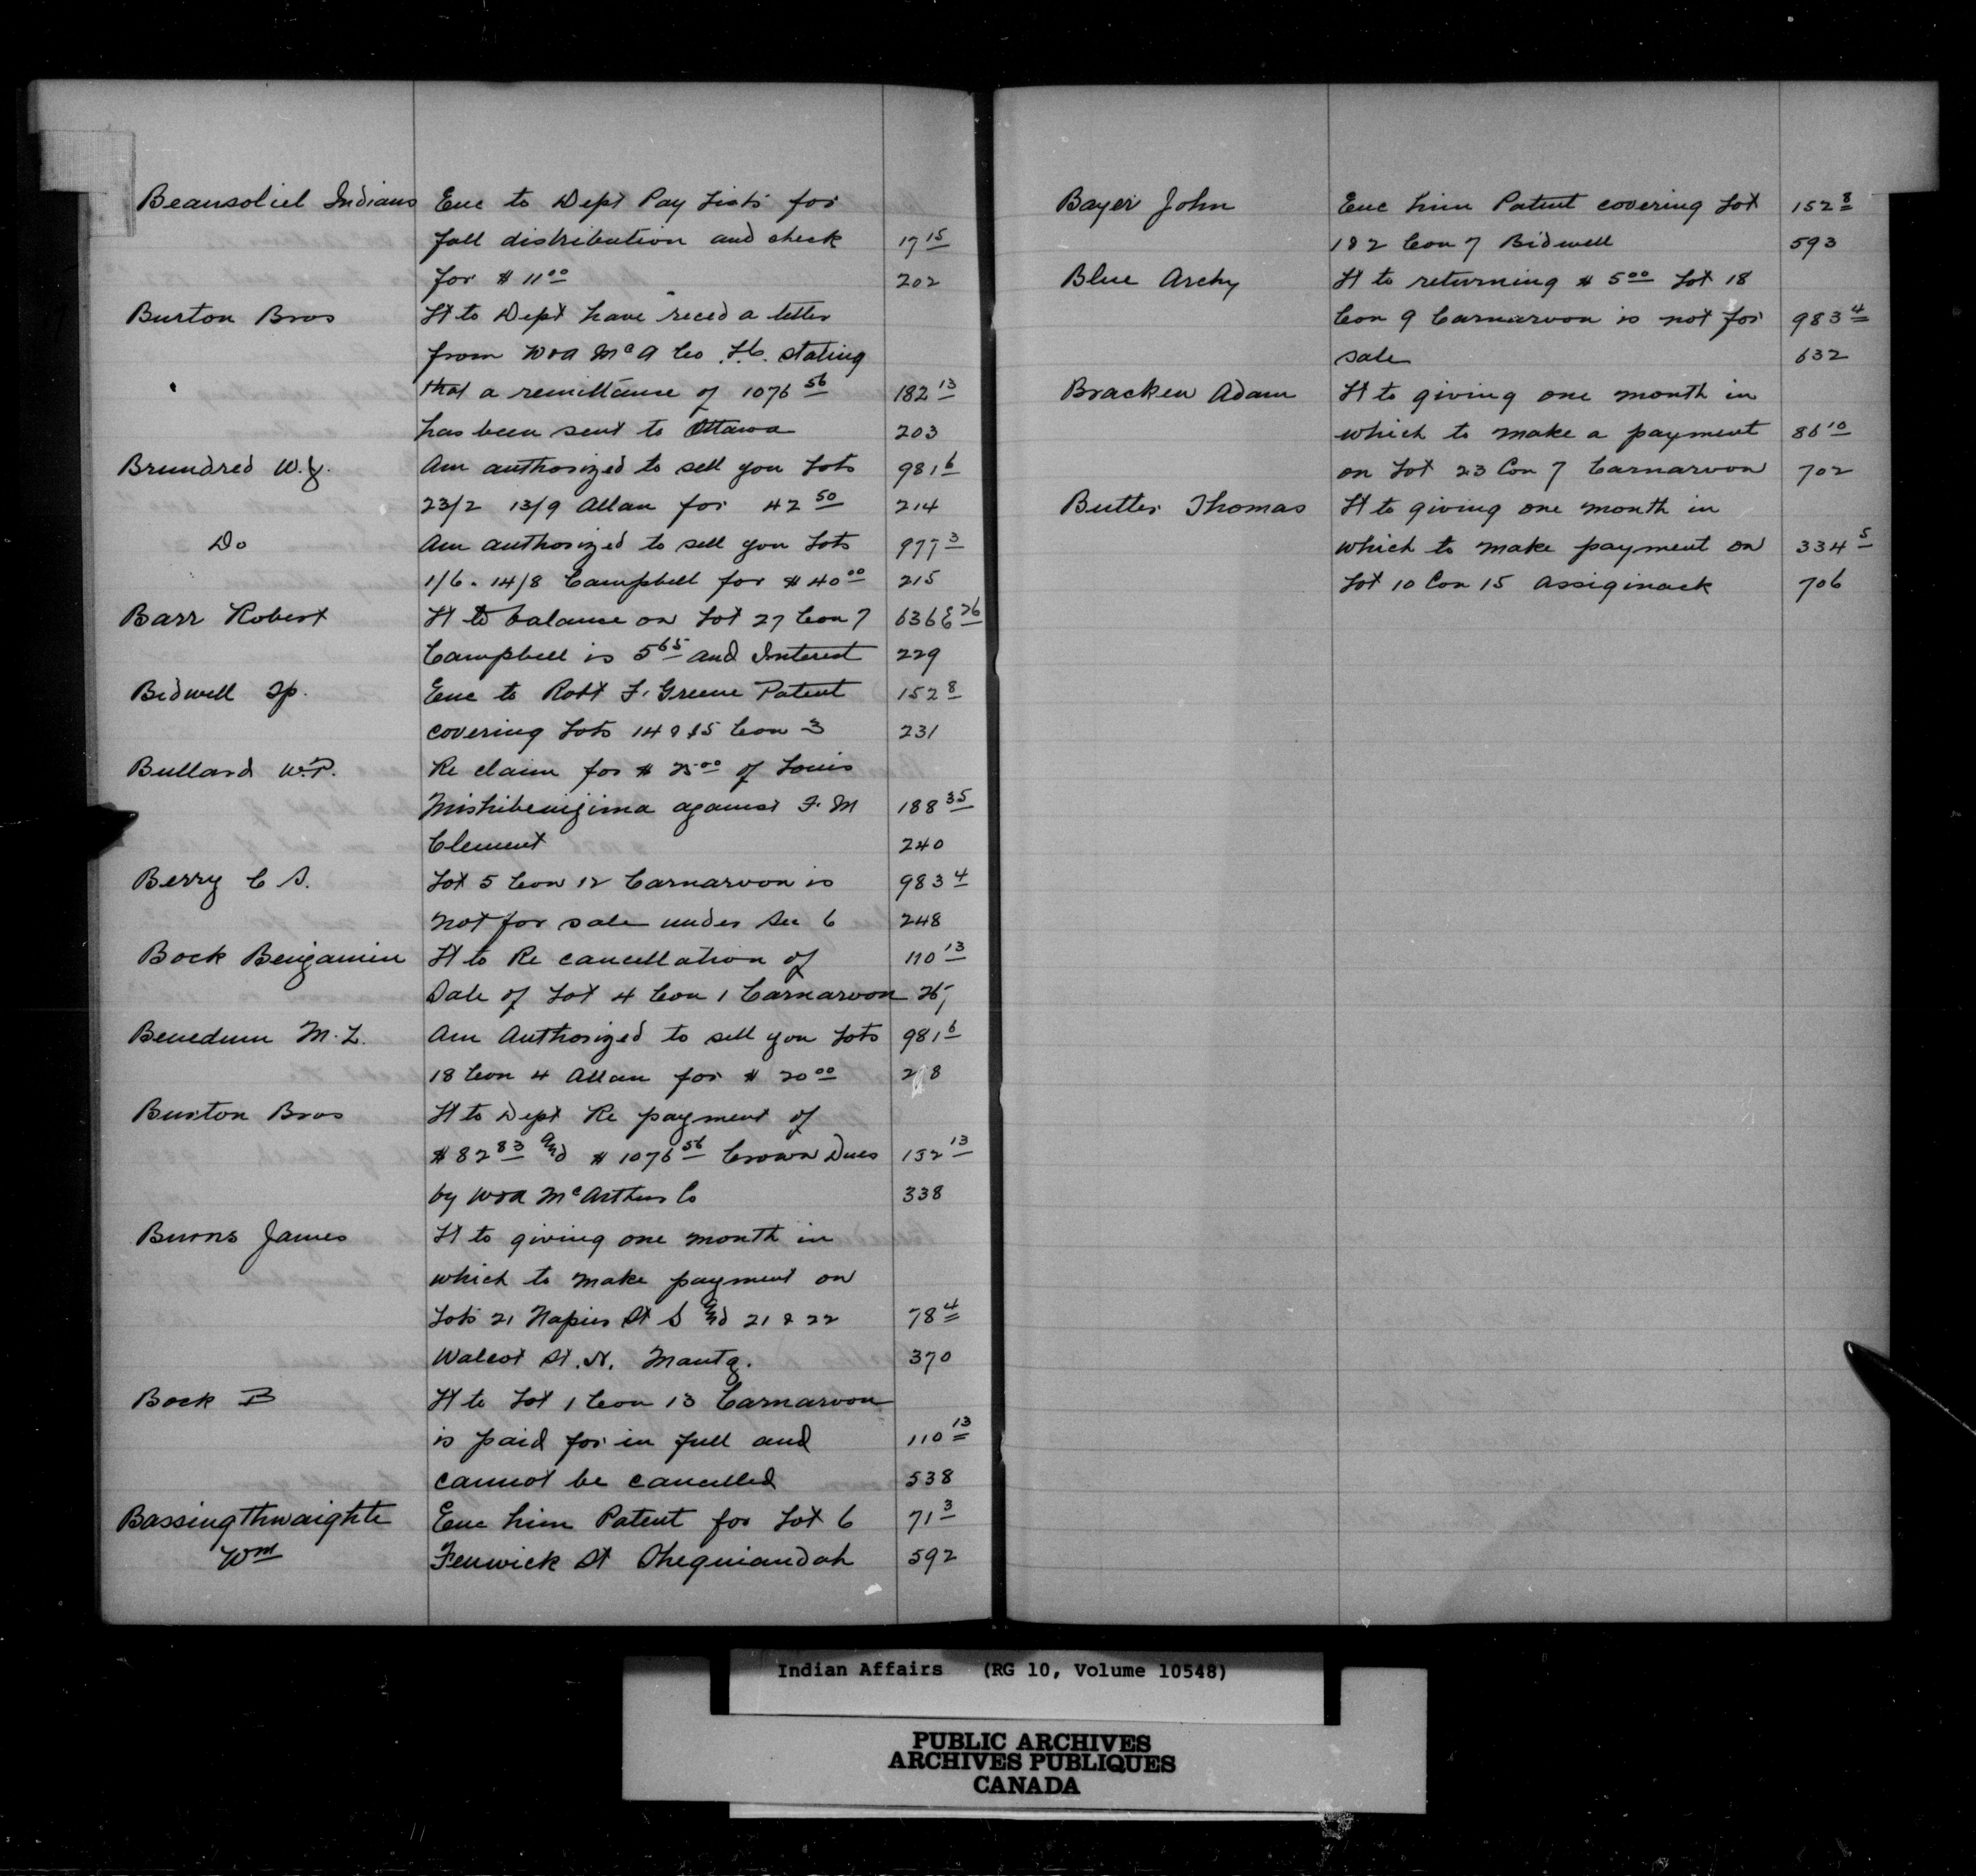 Beausoliel Indians Enc to Dept Pay Lists for
fall distribution and check 17 15
for $ 11 00 202
Burton Bros Lt to Dept have reced a letter
from W & A McA Co Ld. stating
that a remittance of 1076 56 182 13
has been sent to Ottawa 203
Brundred W.J. Am authorized to sell you Lots 981 6
23/2 13/9 Allan for 42 50 214
Do Am authorized to sell you Lots 977 3
1/6. 14/8 Campbell for $ 40 00 215
Barr Robert Lt to balance on Lot 27 Con 7 6366 26
Campbell is 5 65 and Interest 229
Bidwell Tp. Enc to Robt F. Greene Patent 152 8
covering Lots 14 & 15 Con 3 231
Bullard W.P. Re claim for $ 25 00 of Louis
Mishibenijima against F. M 188 35
Clement 240
Berry C S. Lot 5 Con 12 Carnarvon is 983 4
not for sale under Sec 6 248
Bock Benjamin Lt to Re cancellation of 110 13
Sale of Lot 4 Con 1 Carnarvon
Benedum M. L. Am Authorized to sell you Lots 981 6
18 Con 4 Allan for $ 20 00
Burton Bros Lt to Dept Re payment of
$ 82 83 and $ 1076 56 Crown Dues 132 13
by W & A McArthur Co 338
Burns James Lt to giving one month in
which to make payment on
Lots 21 Napier St S and 21 & 22 78 4
Walcot St. N. Mantg. 370
Bock B Lt to Lot 1 Con 13 Carnarvon
is paid for in full and 110 13
cannot be cancelled 538
Bassingthwaighte Enc him Patent for Lot 6 71 3
Wm Fenwick St Sheguiandah 592
Bayer John Enc him Patent covering Lot 152 8
1 & 2 Con 7 Bidwell 593
Blue Archy Lt to returning $ 5 00 Lot 18
Con 9 Carnarvon is not for 983 4
sale 632
Bracken Adam Lt to giving one month in
which to make a payment 86 10
on Lot 23 Con 7 Carnarvon 702
Butler Thomas Lt to giving one month in
which to make payment on 334 5
Lot 10 Con 15 Assiginack 706
Indian Affairs (RG 10, Volume 10548)
PUBLIC ARCHIVES
ARCHIVES PUBLIQUES
CANADA